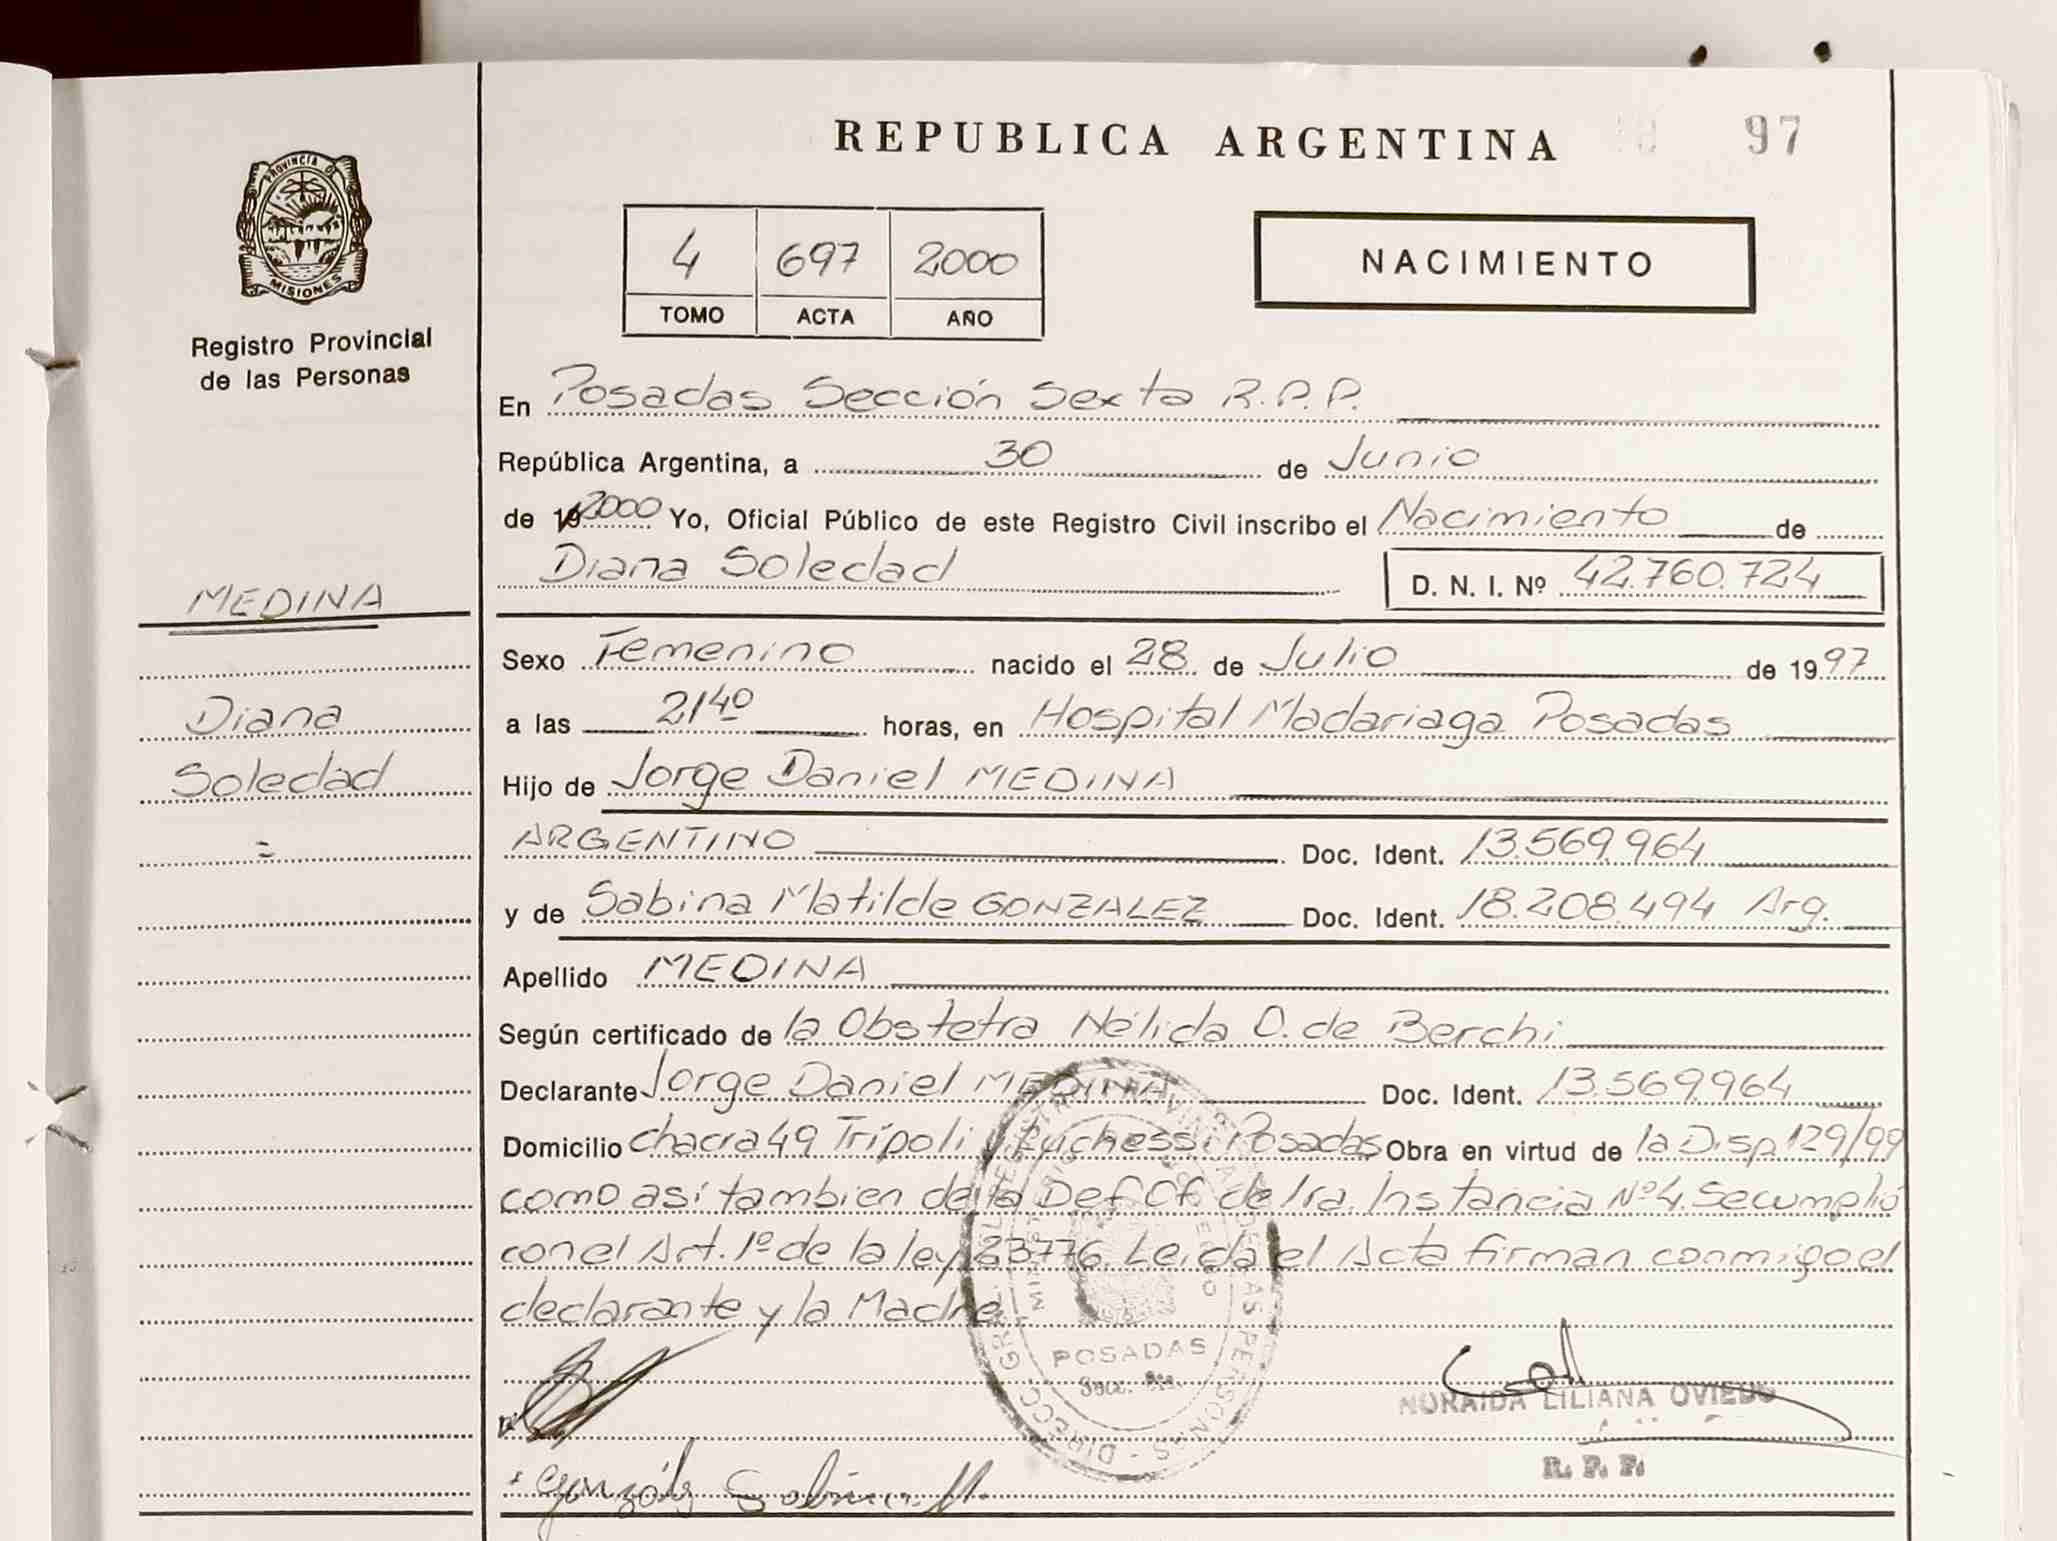 REPUBLICA ARGENTINA
97
PROVINCIA DE
MISIONES
Registro Provincial
de las Personas
4 697 2000
TOMO ACTA AÑO
NACIMIENTO
En Posadas Sección Sexta R.P.P.
República Argentina, a 30 de Junio
de 19 2000 Yo, Oficial Público de este Registro Civil inscribo el Nacimiento de
Diana Soledad D. N. I. Nº 42.760.724
MEDINA
Diana
Soledad
=
Sexo Femenino nacido el 28 de Julio de 1997
a las 2140 horas, en Hospital Madariaga Posadas
Hijo de Jorge Daniel MEDINA
ARGENTINO Doc. Ident. 13.569.964
y de Sabina Matilde GONZALEZ Doc. Ident. 18.208.494 Arg.
Apellido MEDINA
Según certificado de la Obstetra Nélida O. de Berchi
Declarante Jorge Daniel MEDINA Doc. Ident. 13.569.964
Domicilio chacra 49 Trípoli y Luchessi Posadas Obra en virtud de la Disp. 129/99
como así tambien de la Def. Of. de 1ra. Instancia Nº 4. Se cumplió
con el Art. 1º de la ley 23776. Leida el Acta firman conmigo el
declarante y la Madre.
POSADAS
NORAIDA LILIANA OVIEDO
R. P. P.
González Sabina M.